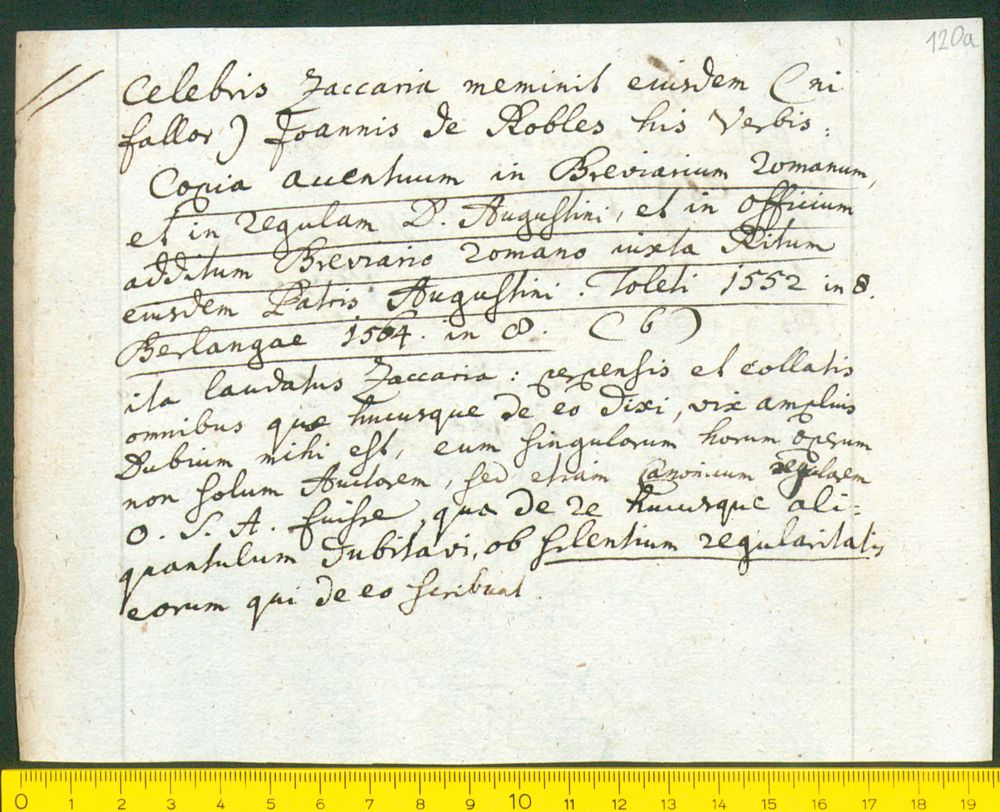 120a
// Celebris Zaccaria meminit eiusdem (ni
fallor) Joannis de Robles his verbis:
Copia accentuum in Breviarium Romanum,
et in regulam D. Augustini, et in officium
additum Breviario Romano iuxta Ritum
eiusdem Patris Augustini. Toleti 1552 in 8.
Berlangae 1564. in 8. (b)
ita laudatus Zaccaria: perpensis et collatis
omnibus quae hucusque de eo dixi, vix amplius
Dubium mihi est, eum singularum horum operum
non solum Auctorem, sed etiam Canonicum regularem
O. S. A. fuisse, qua de re hucusque ali=
quantulum dubitavi, ob silentium regularitatis
eorum qui de eo scribunt.
0 1 2 3 4 5 6 7 8 9 10 11 12 13 14 15 16 17 18 19